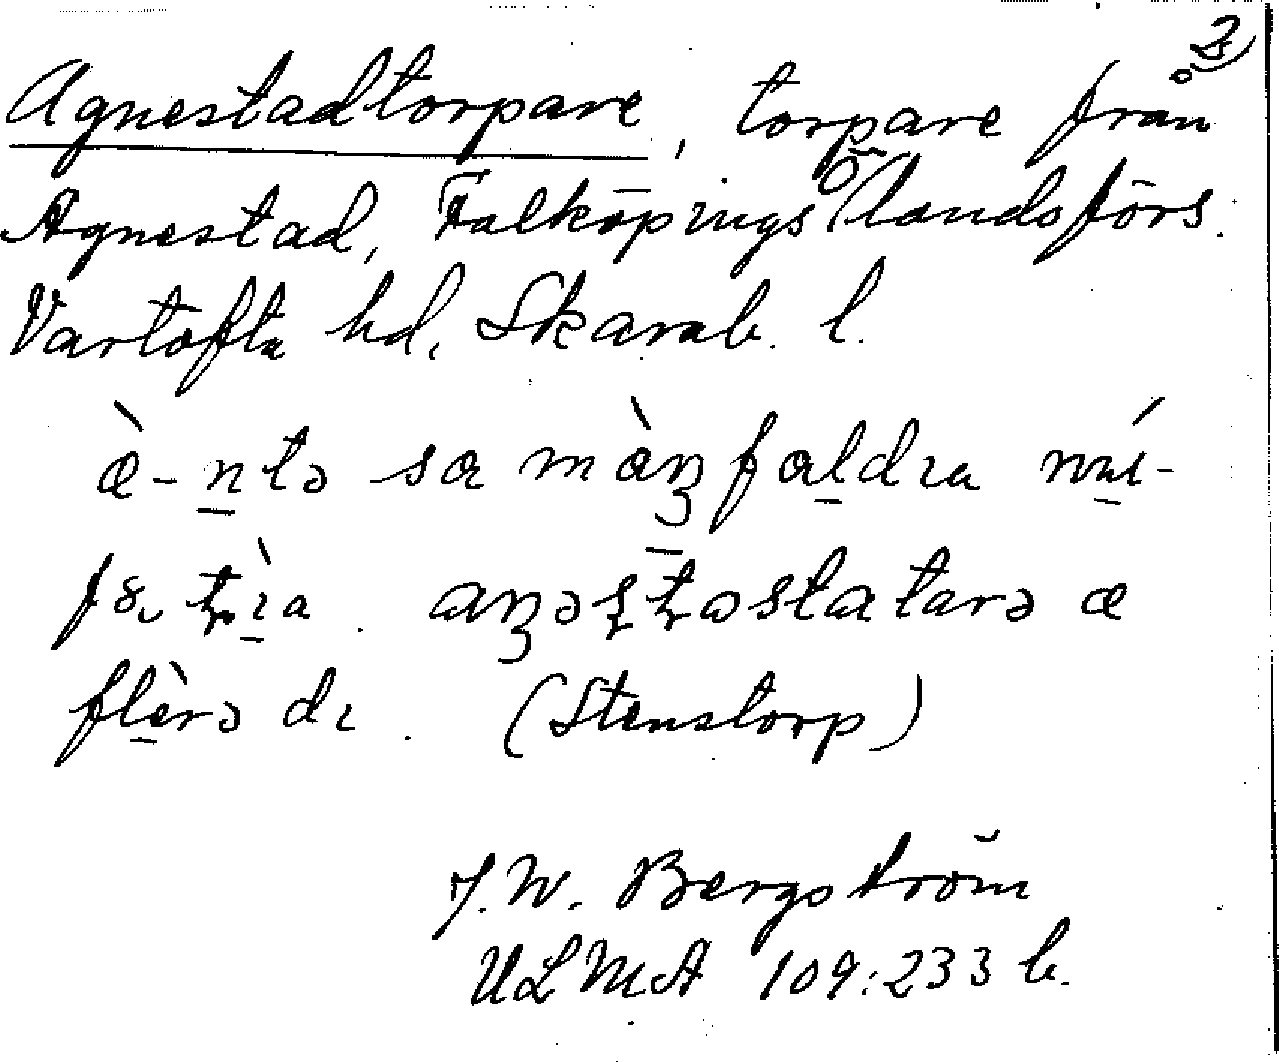 2)
Agnestadtorpare, torpare från
Agnestad, Falköpings landsförs.
Vartofta hd, Skarab. l.
æ̀-ntə sa mànfaldıa
flèrə dı. (Stenstorp)
J. W. Bergström
ULMA 109:233 b.